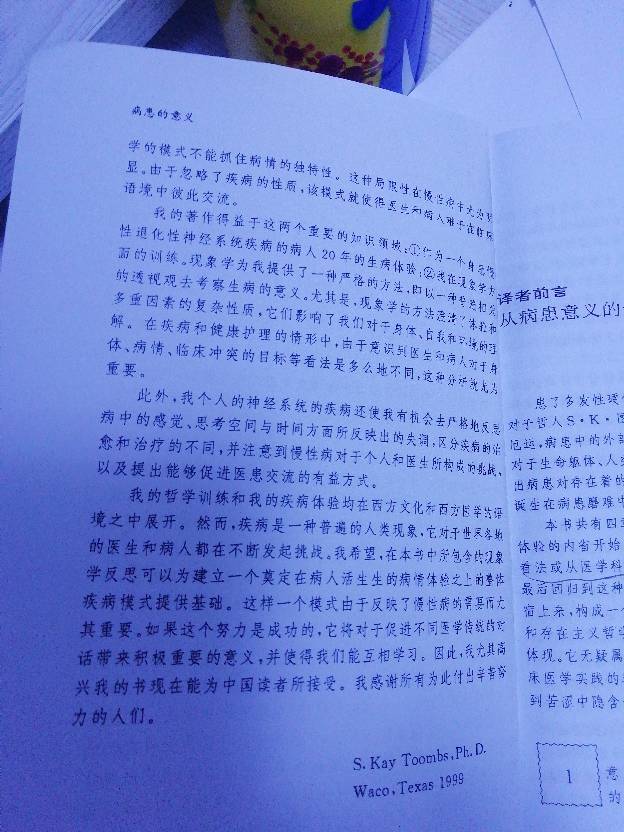 病患的意义
学的模式不能抓住病情的独特性。这种局限性在慢性病中尤为明
显。由于忽略了疾病的性质，该模式就使得医生和病人难于在临床
语境中彼此交流。
我的著作得益于这两个重要的知识领域：①作为一个身患慢
性退化性神经系统疾病的病人20年的生病体验；②我在现象学方
面的训练。现象学为我提供了一种严格的方法，即以一种
的透视观去考察生病的意义。尤其是，现象学的方法澄清了体验和
多重因素的复杂性质，它们影响了我们对于身体、自我和环境的理
解。在疾病和健康护理的情形中，由于意识到医生和病人对于身
体、病情、临床冲突的目标等看法是多么地不同，这种分析就尤为
重要。
此外，我个人的神经系统的疾病还使我有机会去严格地反思
病中的感觉、思考空间与时间方面所反映出的失调，区分疾病的治
愈和治疗的不同，并注意到慢性病对于个人和医生所构成的挑战，
以及提出能够促进医患交流的有益方式。
我的哲学训练和我的疾病体验均在西方文化和西方医学的语
境之中展开。然而，疾病是一种普遍的人类现象，它对于世界各地
的医生和病人都在不断发起挑战。我希望，在本书中所包含的现象
学反思可以为建立一个奠定在病人活生生的病情体验之上的整体
疾病模式提供基础。这样一个模式由于反映了慢性病的需要而尤
其重要。如果这个努力是成功的，它将对于促进不同医学传统的对
话带来积极重要的意义，并使得我们能互相学习。因此，我尤其高
兴我的书现在能为中国读者所接受。我感谢所有为此付出辛苦努
力的人们。
S. Kay Toombs, Ph. D.
Waco, Texas 1999
译者前言
从病患意义的
患了多发性硬化
对于哲人S·K·
厄运，病患中的外部
对于生命躯体、人
出病患对存在着的
诞生在病患磨难中
本书共有四
体验的内省开始
看法或从医学科
最后回归到这种
宿上来，构成一个
和存在主义哲学
体现。它无疑属
床医学实践的
到苦涩中隐含
1
意
的